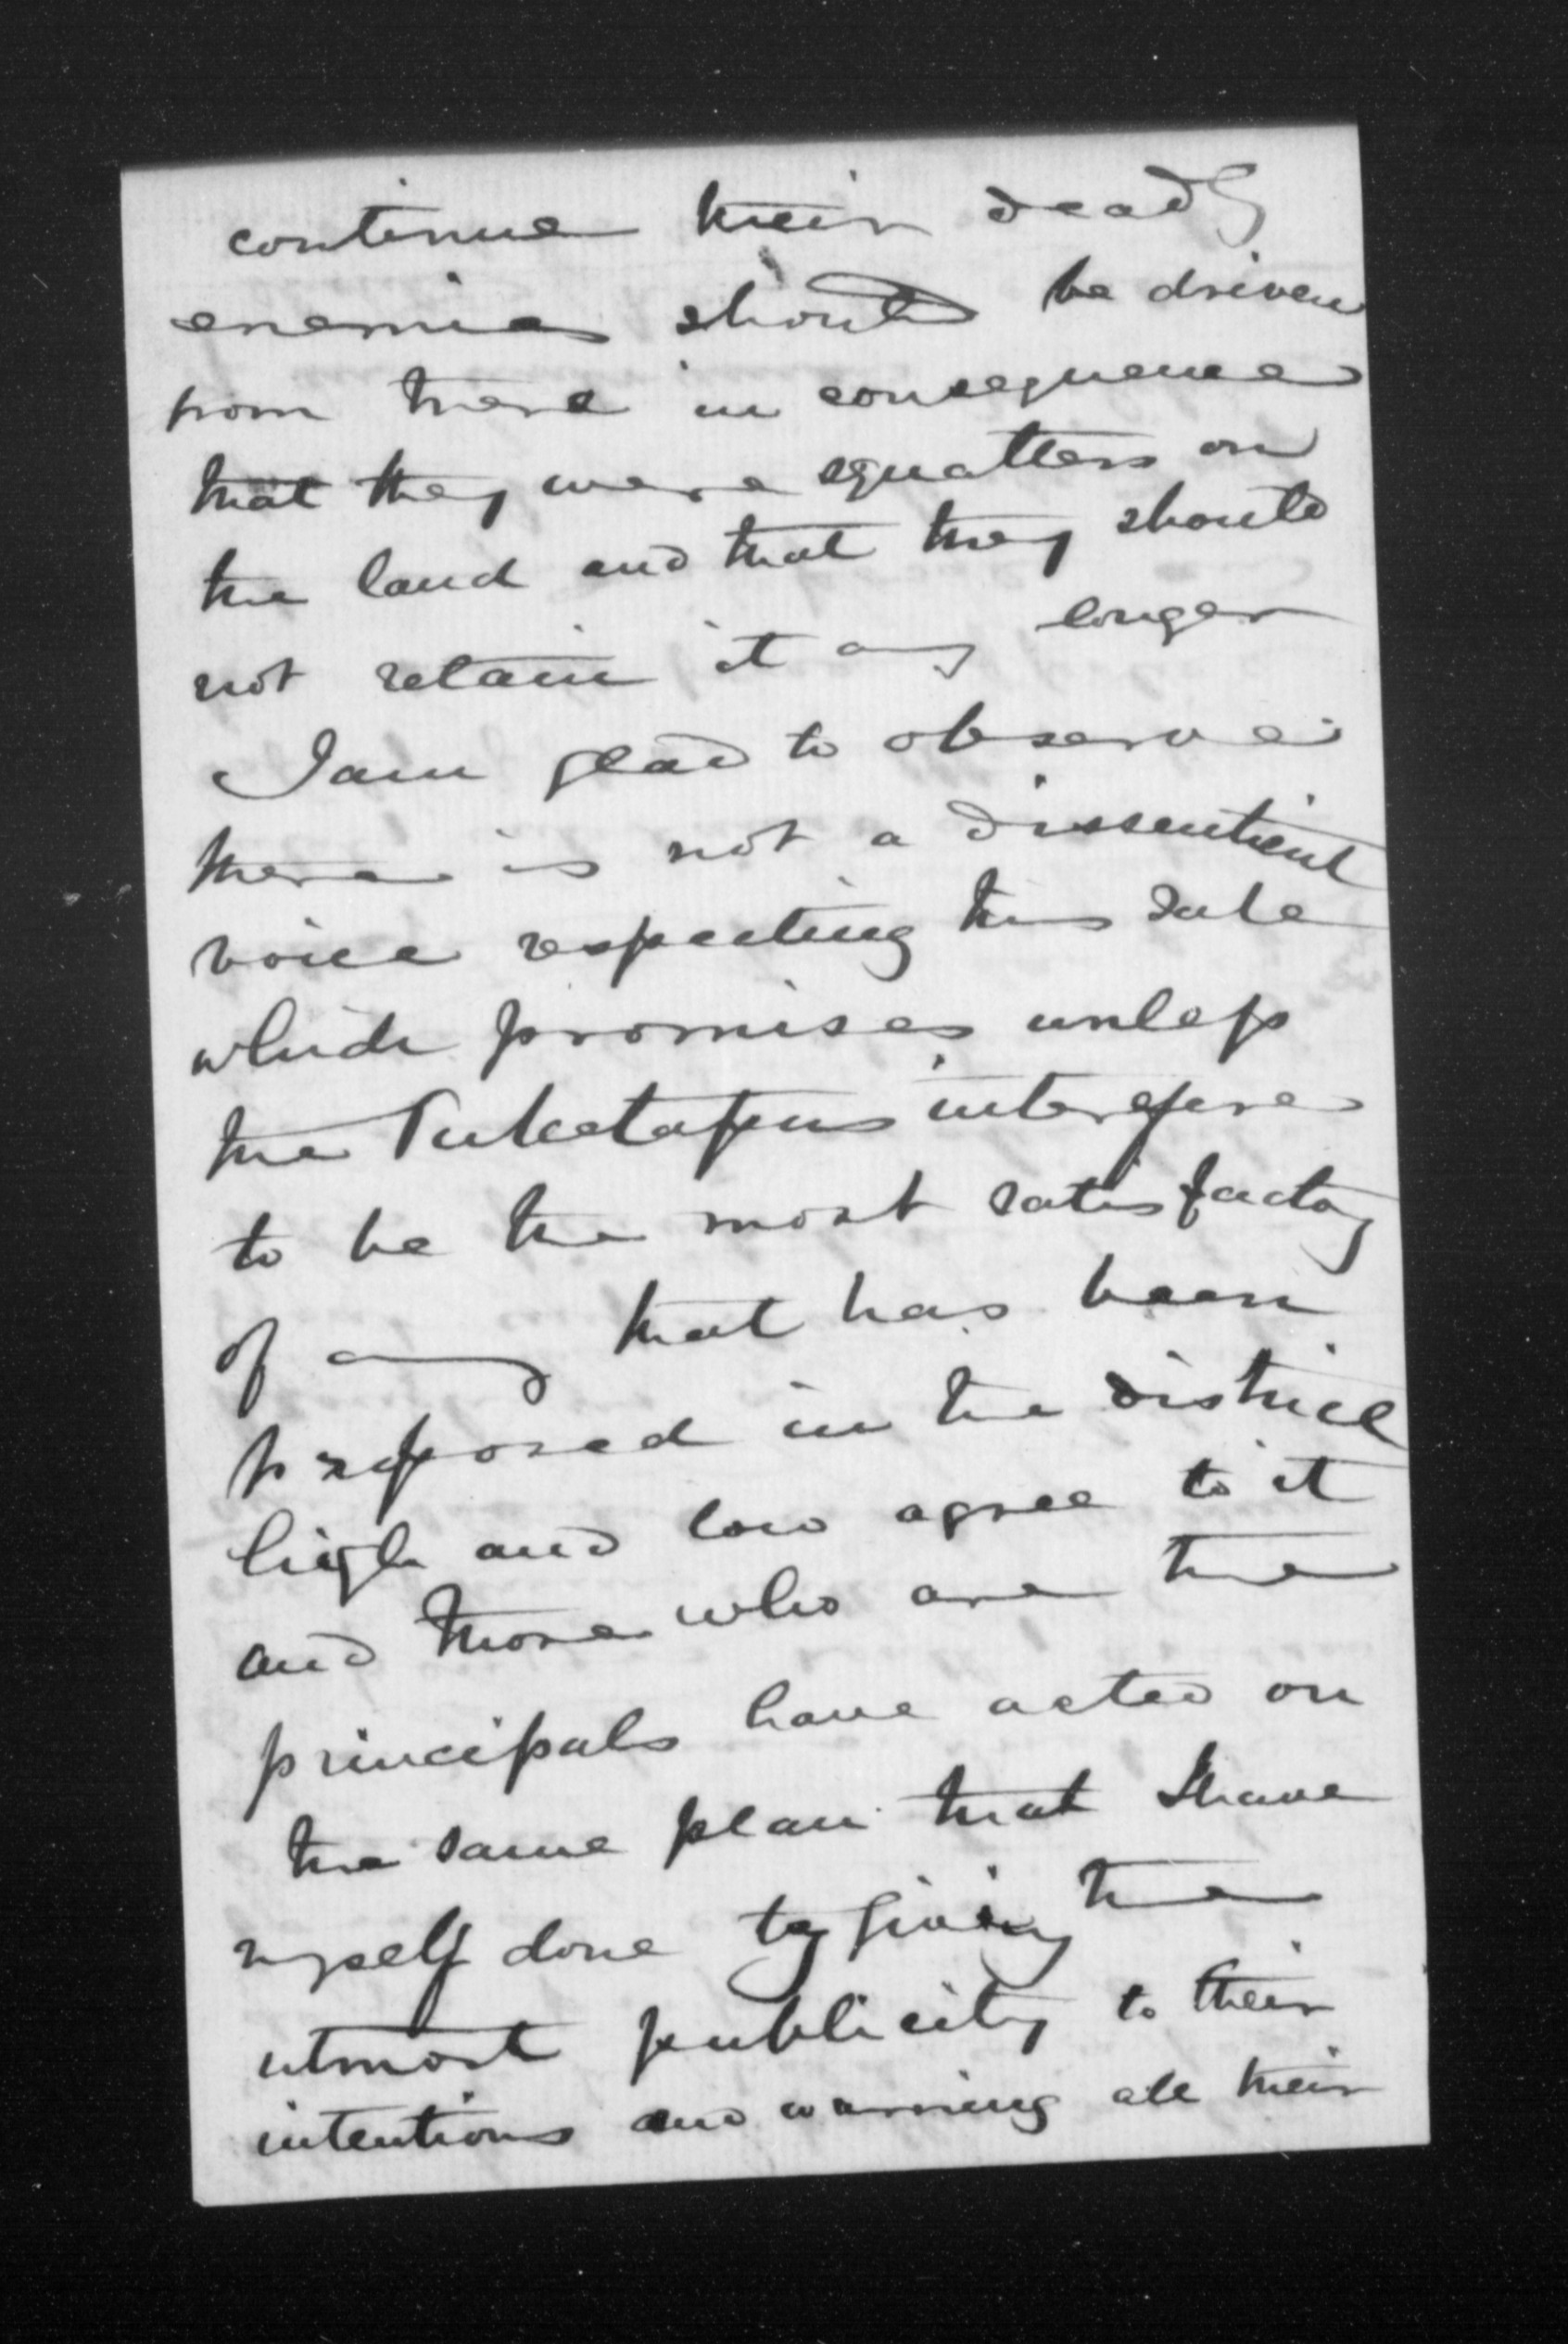 continue their deadly
enemies should be driven
from there in consequence
that they were squatters on
the land and that they should
not retain it any longer
I am glad to observe
there is not a dissentient
voice respecting this sale
which promises unless
the Puketapus interefere
to be the most satisfactory
of any that has been
proposed in the district
high and low agree to it
and those who are the
principals have acted on
the same plan that I have
myself done by giving the
utmost publicity to their
intentions and warning all their